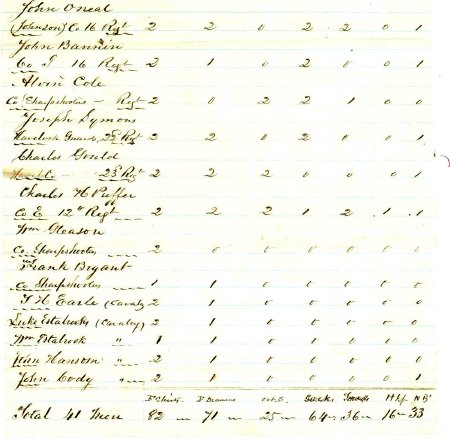 John Oneal
(Johnson) Co 16 Regt 2 2 0 2 2 0 1
John Bannin
Co I 16 Regt 2 1 0 2 0 0 1
Alvin Cole
Co Sharpshooters - Regt 2 0 2 2 1 0 0
Joseph Symons
Havelock Guard, 22d Regt 2 2 0 2 0 0 1
Charles Gould
23d Regt 2 2 2 0 0 0 1
Charles H Puffer
Co E 12th Regt 2 2 2 1 2 1 1
Wm Gleason
Co Sharpshooters 2 0 0 0 0 0 0
Frank Bryant
Co Sharpshooters 1 1 0 0 0 0 0
T H Earle (Cavalry) 2 1 0 0 0 0 0
Luke Estabrooks (Cavalry) 2 1 0 0 0 0 0
Wm Estabrook " 1 1 0 0 0 0 0
John Hanson " 2 1 0 0 0 0 0
John Cody " 2 1 0 0 0 0 1
Socks Towels H kf N B
Total 41 Men 82 71 25 64 36 16 33